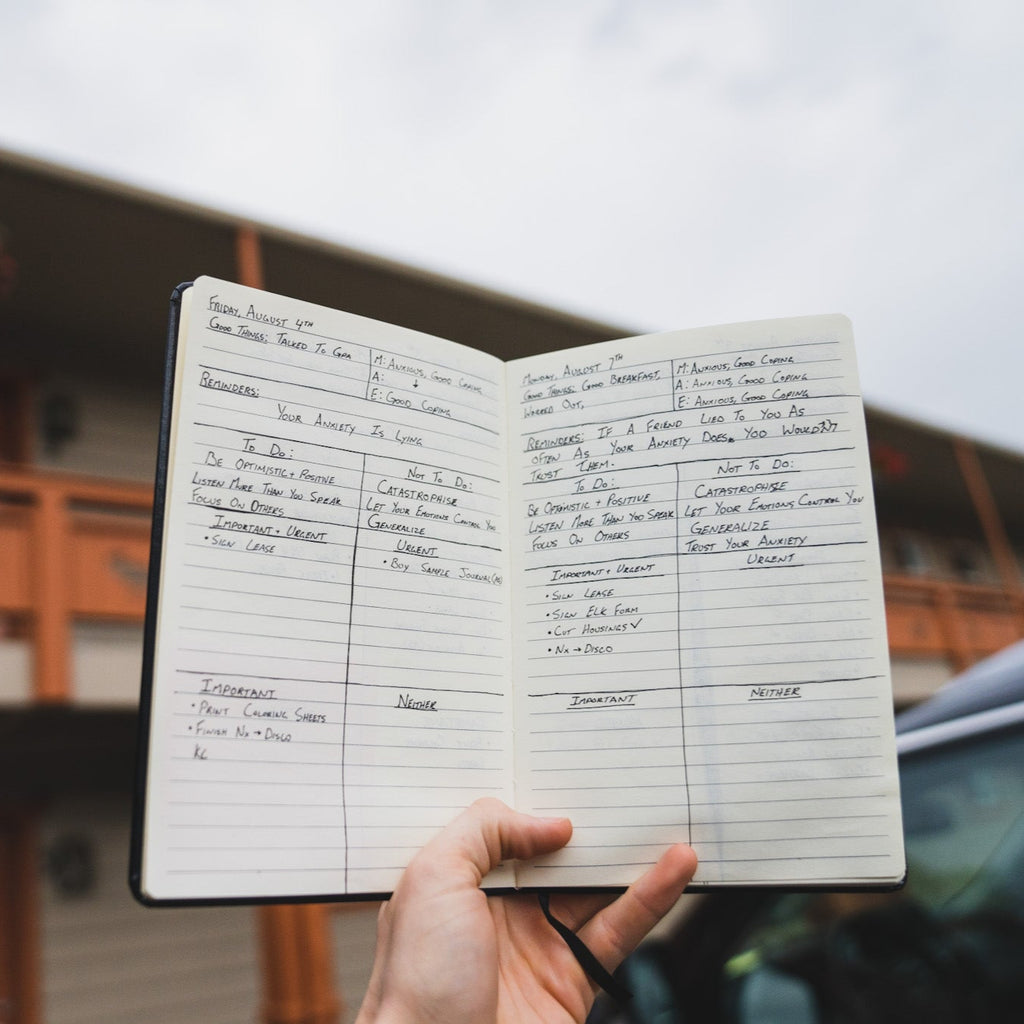 FRIDAY, AUGUST 4TH
GOOD THINGS: TALKED TO GPA
M: ANXIOUS, GOOD COPING
A: ↓
E: GOOD COPING
REMINDERS:
YOUR ANXIETY IS LYING
TO DO:
BE OPTIMISTIC + POSITIVE
LISTEN MORE THAN YOU SPEAK
FOCUS ON OTHERS
NOT TO DO:
CATASTROPHISE
LET YOUR EMOTIONS CONTROL YOU
GENERALIZE
IMPORTANT + URGENT
• SIGN LEASE
URGENT
• BUY SAMPLE JOURNAL
IMPORTANT
• PRINT COLORING SHEETS
• FINISH Nx → DISCO
KC
NEITHER
MONDAY, AUGUST 7TH
GOOD THINGS: GOOD BREAKFAST,
WORKED OUT,
M: ANXIOUS, GOOD COPING
A: ANXIOUS, GOOD COPING
E: ANXIOUS, GOOD COPING
REMINDERS: IF A FRIEND LIED TO YOU AS
OFTEN AS YOUR ANXIETY DOES, YOU WOULDN'T
TRUST THEM.
TO DO:
BE OPTIMISTIC + POSITIVE
LISTEN MORE THAN YOU SPEAK
FOCUS ON OTHERS
NOT TO DO:
CATASTROPHISE
LET YOUR EMOTIONS CONTROL YOU
GENERALIZE
TRUST YOUR ANXIETY
IMPORTANT + URGENT
• SIGN LEASE
• SIGN ELK FORM
• CUT HOUSINGS ✓
• Nx → DISCO
URGENT
IMPORTANT
NEITHER